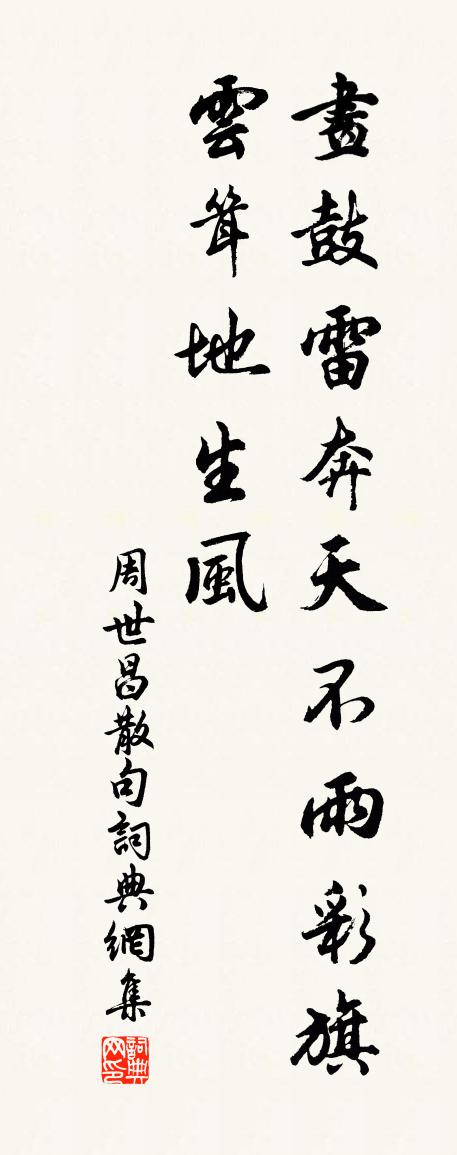 畫鼓雷奔天不雨彩旗
雲聳地生風
周世昌散句詞典網集
詞典
网印